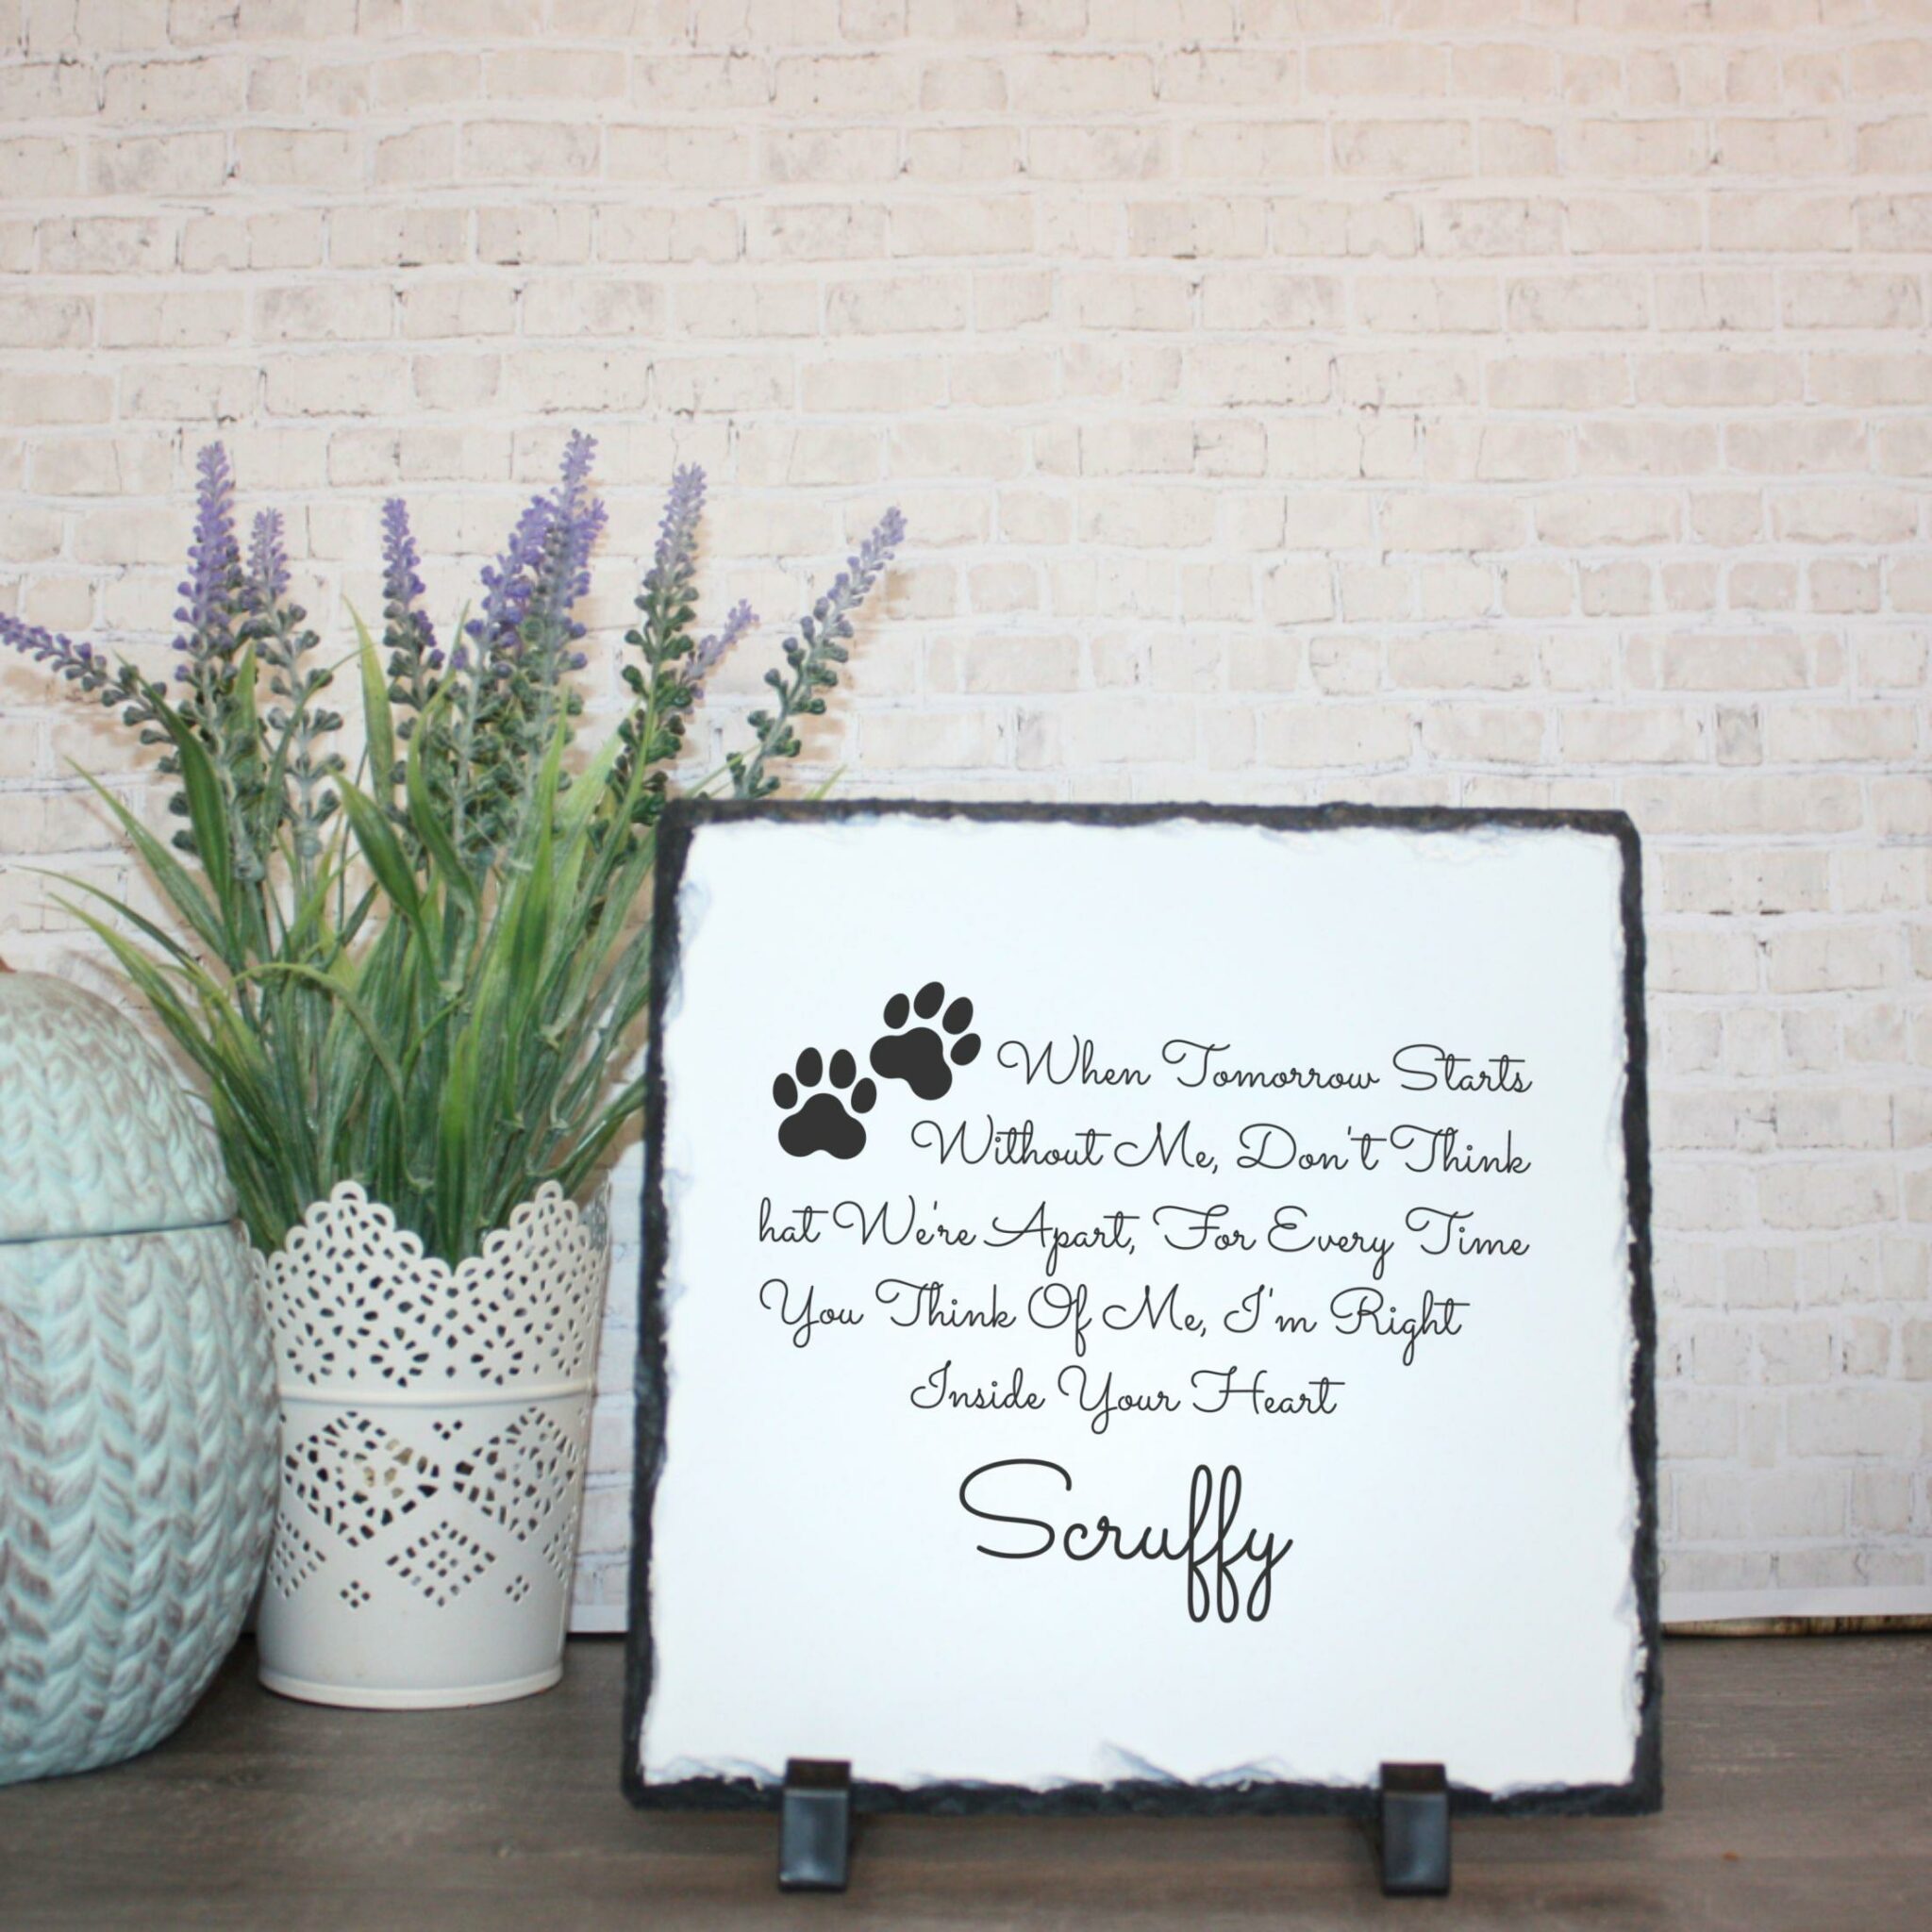 When Tomorrow Starts
Without Me, Don't Think
hat We're Apart, For Every Time
You Think Of Me, I'm Right
Inside Your Heart
Scruffy